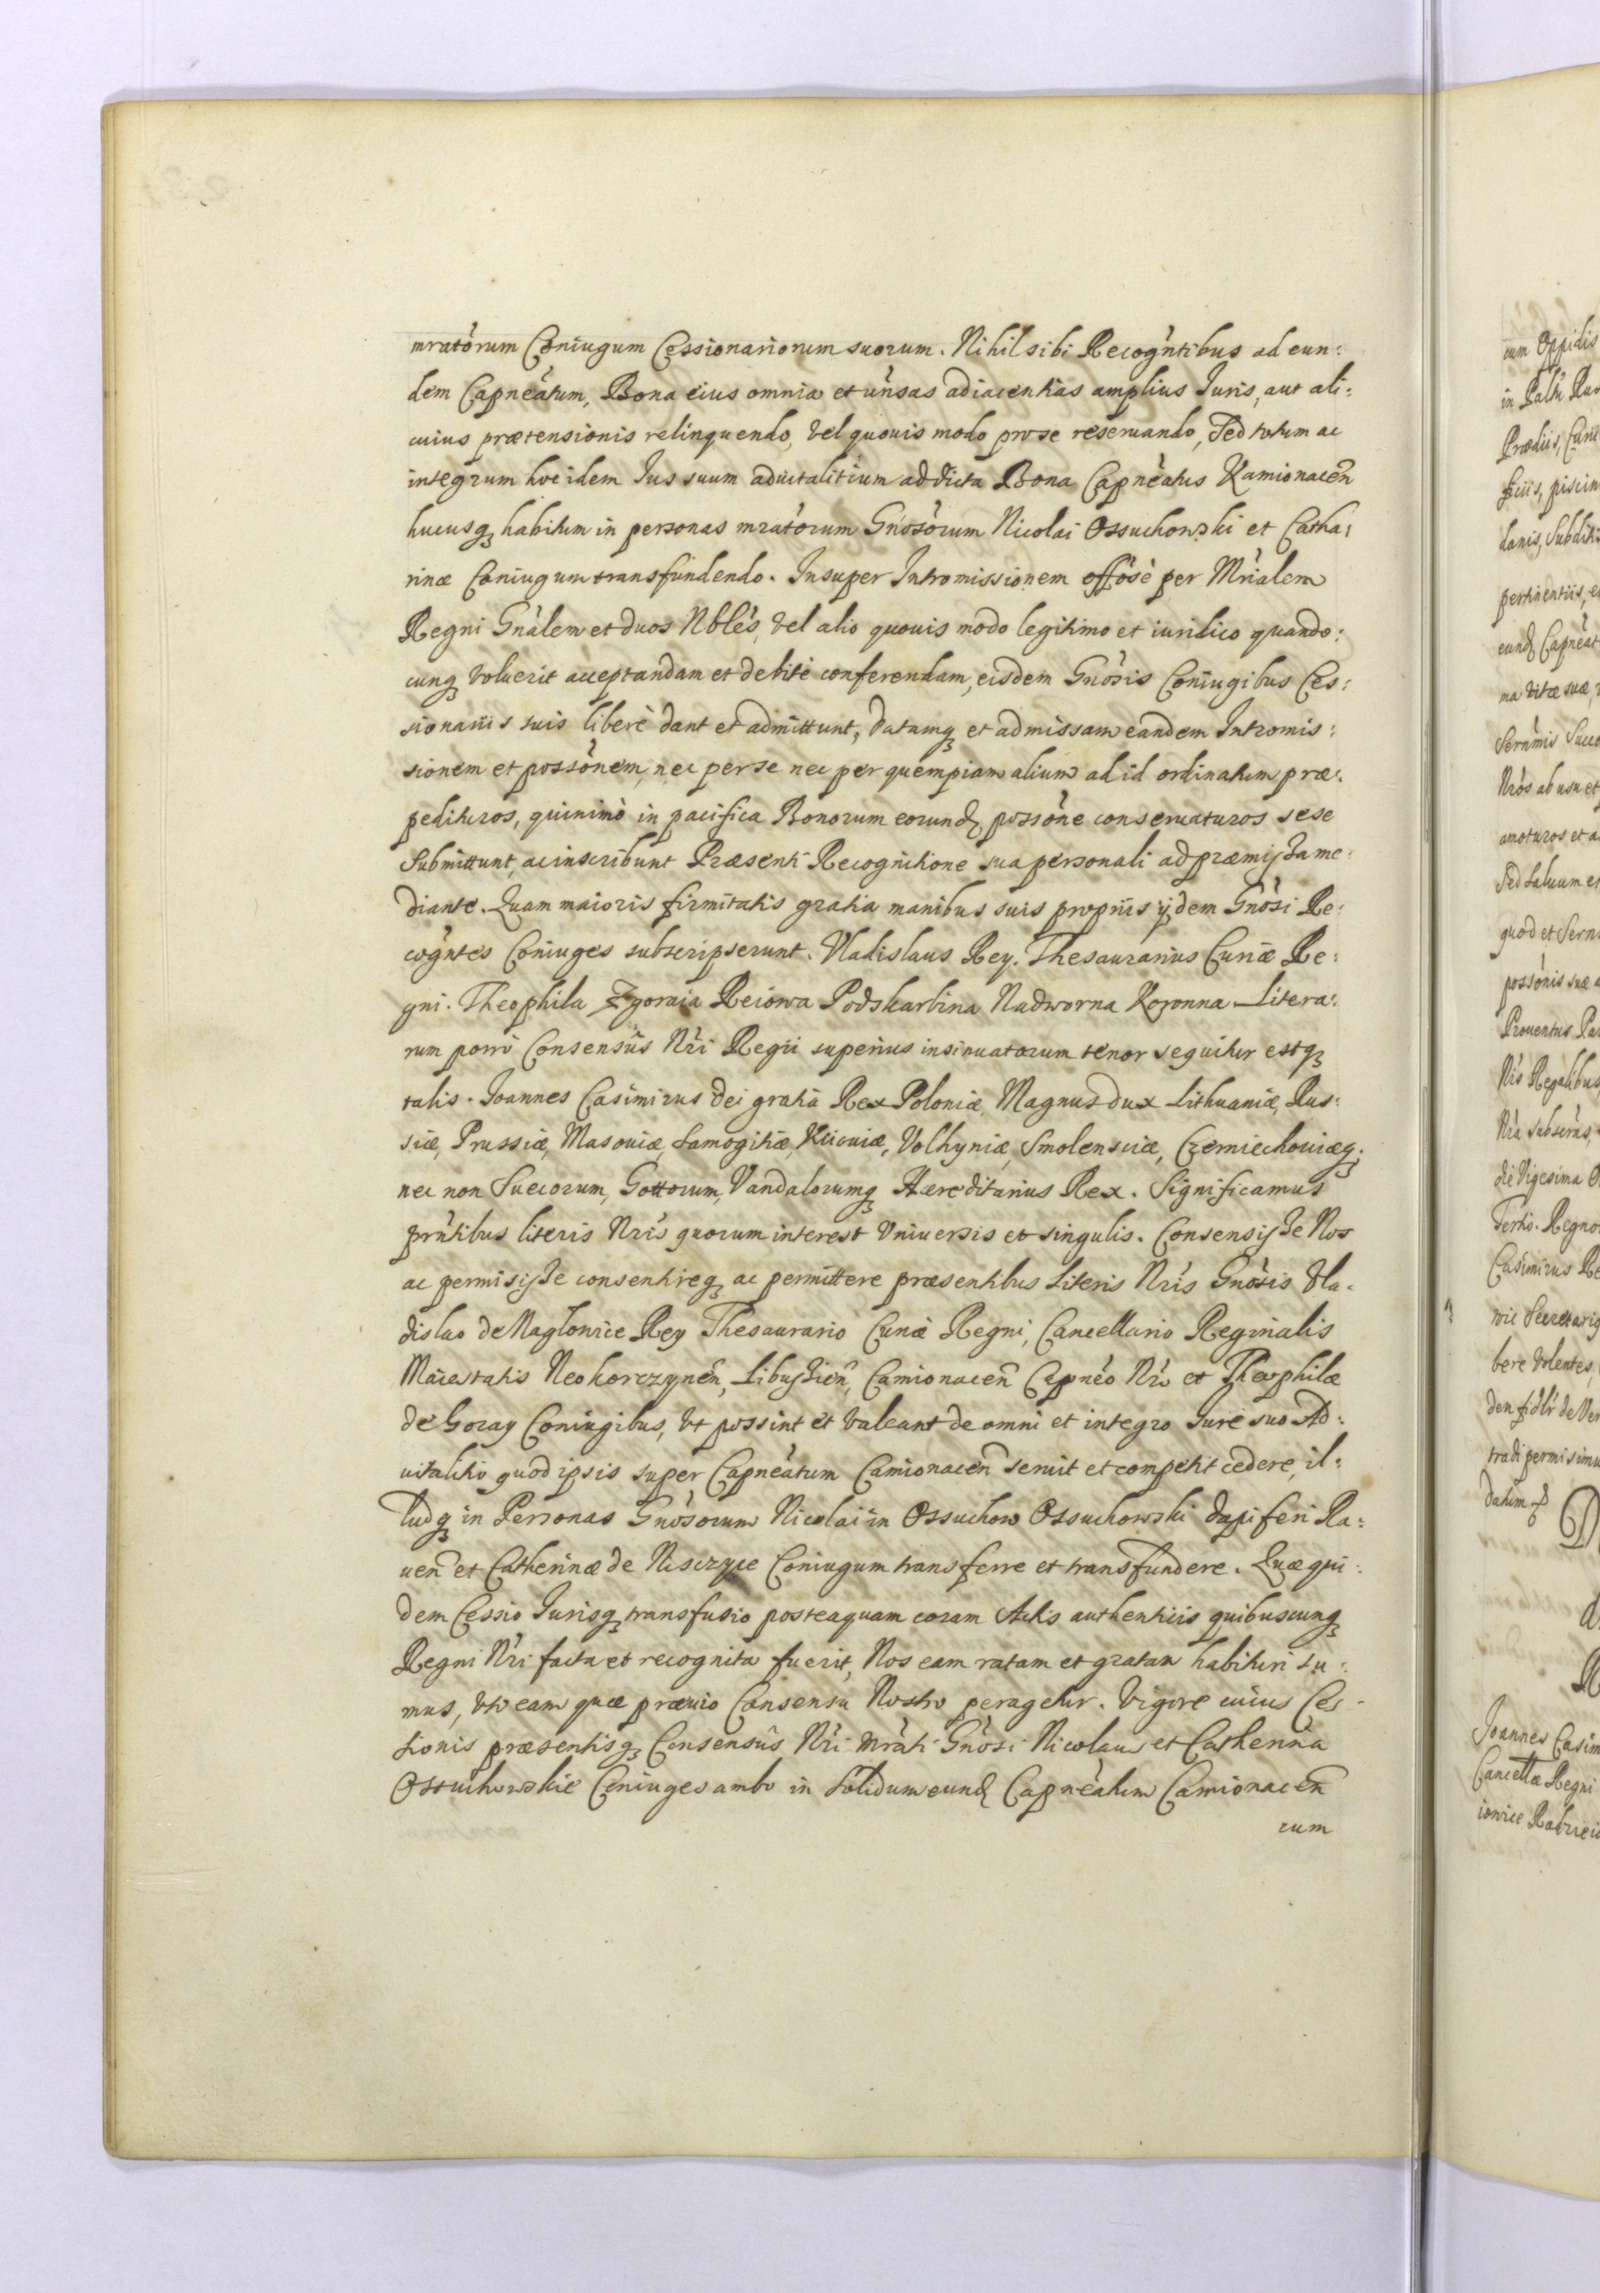 mratorum Coniugum Cessionariorum suorum. Nihil sibi Recogntibus ad eun:
dem Capneatum, Bona eius omnia et unsas adiacentias amplius Iuris, aut ali:
cuius prætensionis relinquendo, vel quouis modo pro se reseruando, Sed totum ac
integrum hoc idem Ius suum aduitalitium ad dicta Bona Capneatus Kamionacen
hucusq habitum in personas mratorum Gnosorum Nicolai Ossuchowski et Catha:
rinæ Coniugum transfundendo. Insuper Intromissionem offose per Mrialem
Regni Gnalem et duos Nbles, vel alio quouis modo legitimo et iuridico quando:
cunq voluerit acceptandam et debite conferendam, eisdem Gnosis Coniugibus Ces:
sionariis suis libere dant et admittunt, datamq et admissam eandem Intromis:
sionem et possonem, nec per se nec per quempiam alium ad id ordinatum præ:
pedituros, quinimò in pacifica Bonorum eorund possone conseruaturos sese
submittunt, ac inscribunt Præsenti Recognitione sua personali ad præmissa me:
diante. Quam maioris firmitatis gratia manibus suis proprijs ijdem Gnosi Re:
cogntes Coniuges subscripserunt. Vladislaus Rey. Thesaurarius Curiæ Re:
gni. Theophila Zgoraia Reiowa Podskarbina Nadworna Koronna. Litera:
rum porrò Consensûs Nri Regii superius insinuatorum tenor sequitur estq
talis. Joannes Casimirus Dei gratiâ Rex Poloniæ, Magnus Dux Lithuaniæ, Rus:
siæ, Prussiæ, Masouiæ, Samogitiæ, Kiiouiæ, Volhyniæ, Smolensciæ, Czerniechouiæq;
nec non Suecorum, Gottorum, Vandalorumq Hæreditarius Rex. Significamus
prntibus literis Nris quorum interest Vniuersis et singulis. Consensisse Nos
ac permisisse consentireq ac permittere præsentibus Literis Nris Gnosis Vla:
dislao de Naglowice Rey Thesaurario Curiæ Regni, Cancellario Reginalis
Maiestatis Neokorczynen, Libussien, Camionacen Capneo Nro et Theophilæ
de Goray Coniugibus, Vt possint et valeant de omni et integro Iure suo Ad:
uitalitio quod ipsis super Capneatum Camionacen seruit et competit cedere, il:
ludq in Personas Gnosorum Nicolai in Ossuchow Ossuchowski Dapiferi Ra:
uen et Catherinæ de Nisczyce Coniugum transferre et transfundere. Quæ qui:
dem Cessio Iurisq transfusio posteaquam coram Actis authenticis quibuscunq
Regni Nri facta et recognita fuerit, Nos eam ratam et gratam habituri su:
mus, vti eam quæ præuio Consensu Nostro peragetur. Vigore cuius Ces:
sionis præsentisq Consensûs Nri mrati Gnosi Nicolaus et Catherina
Ossuchowskie Coniuges ambo in solidum eund Capneatum Camionacen
cum